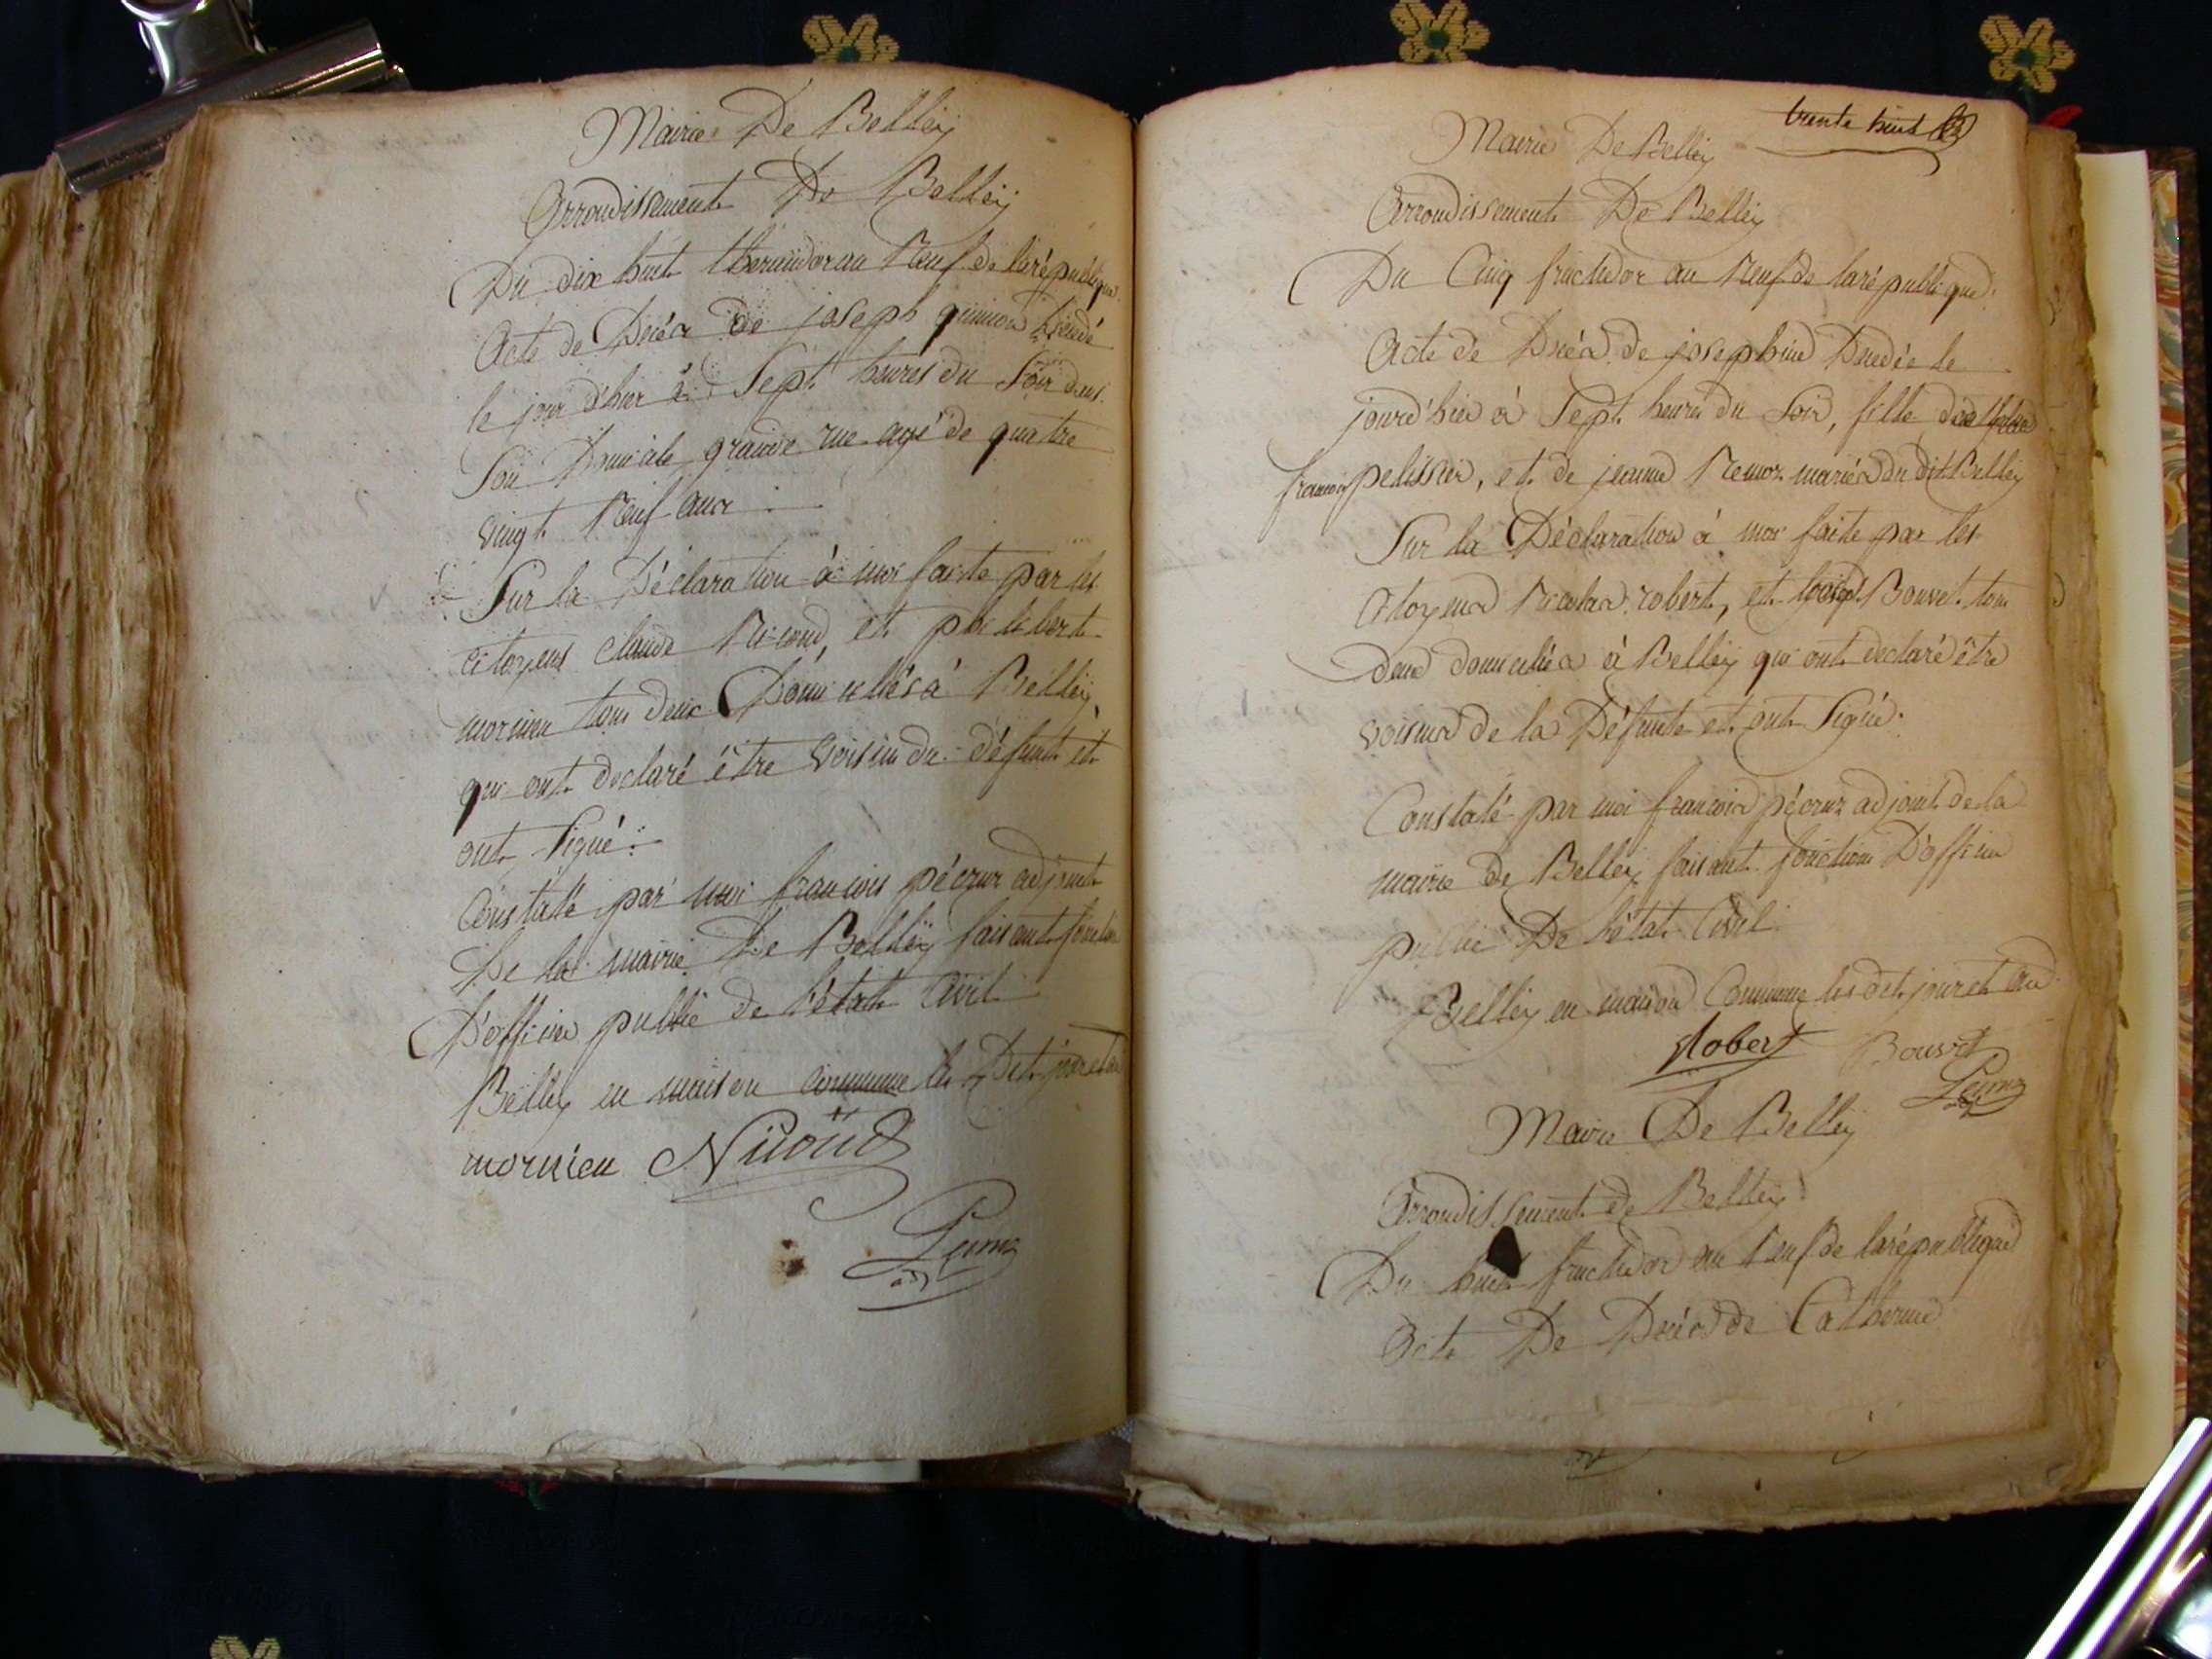 Mairie De Belley
Arrondissement De Belley
Du dix huit thermidor an Neuf de la république
Acte de Décés de joseph décédé
le jour d'hier à Sept heures du Soir dans
Son Domicile grande rue agé de quatre
vingt Neuf ans
Sur la Déclaration à moi faite par les
citoyens claude Nicoud, et philibert
mornieu tous deux Domiciliés à Belley,
qui ont declaré être voisin du défunt et
ont Signé.
Constaté par moi francois pécruz adjoint
De la mairie De Belley faisant fonction
D'officier public de l'état Civil
Belley en maison commune les Dit jour et an
mornieu Nicoud
adjt
trente huit
Mairie De Belley
Arrondissement De Belley
Du Cinq fructidor an Neuf de la république.
Acte de Décés de josephine Décédée le
jour d'hier à Sept heures du Soir, fille de
francois pelissier, et de jeanne mariés du dit Belley
Sur la Déclaration à moi faite par les
Citoyens Nicolas robert, et Bouvet tous
deux domiciliés à Belley qui ont declaré être
voisins de la Défunte et ont Signé.
Constaté par moi francois pécruz adjoint de la
mairie De Belley faisant fonction D'officier
public De l'état Civil
Belley en maison Commune les dit jour et an
Robert Bouvet
Mairie De Belley
Arrondissement de Belley
Du huit fructidor an Neuf de la république
Acte De Décés de Catherine